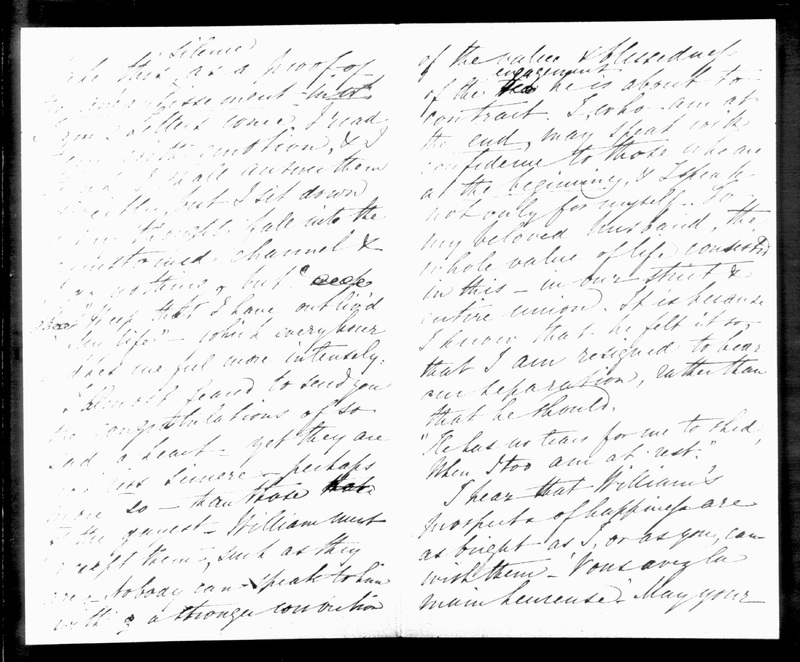 silence
take this as a proof of
my advertisement - in
letters come, I read
with emotion, & I
think I shall answer them
directly, but I sit down
my thoughts fall into the
accustomed channel &
nothing but
"Weep that I have outliv'd
life" - which every hour
makes me feel more intensely.
I almost feared to send you
the congratulations of so
sad a heart - yet they are
not less sincere - perhaps
more so - than those
of the gayest - William must
accept them, such as they
are - Nobody can speak to him
with a stronger conviction
of the value & blessedness
engagement
of the he is about to
contract. I, who am at
the end, may speak with
confidence to those who are
at the beginning, & I speak
not only for myself. To
my beloved husband, the
whole value of life consisted
in this - in our strict &
entire union. It is because
I know that he felt it so,
that I am resigned to bear
our separation, rather than
that he should.
"He has no tears for me to shed,
When I too am at rest."
I hear that William's
prospects of happiness are
as bright as I, or as you, can
wish them - 'Vous avez la
main heureuse.' May your